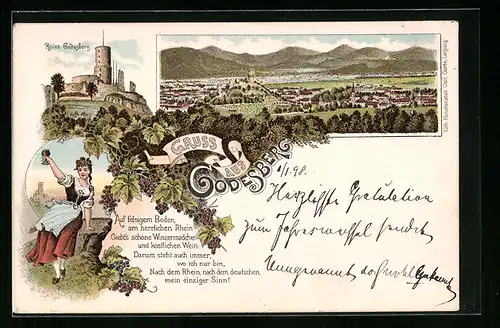 Ruine Godesberg
GRUSS
AUS
GODESBERG
Auf felsigem Boden,
am herrlichen Rhein
Giebt's schöne Winzermädchen
und köstlichen Wein.
Darum steht auch immer,
wo ich nur bin,
Nach dem Rhein, nach dem deutschen,
mein einziger Sinn!
Lith. Kunstanstalt Carl Garte, Leipzig
1/1.98.
Herzlichste Gratulation
zum Jahreswechsel sendet
Ungenannt doch wohl